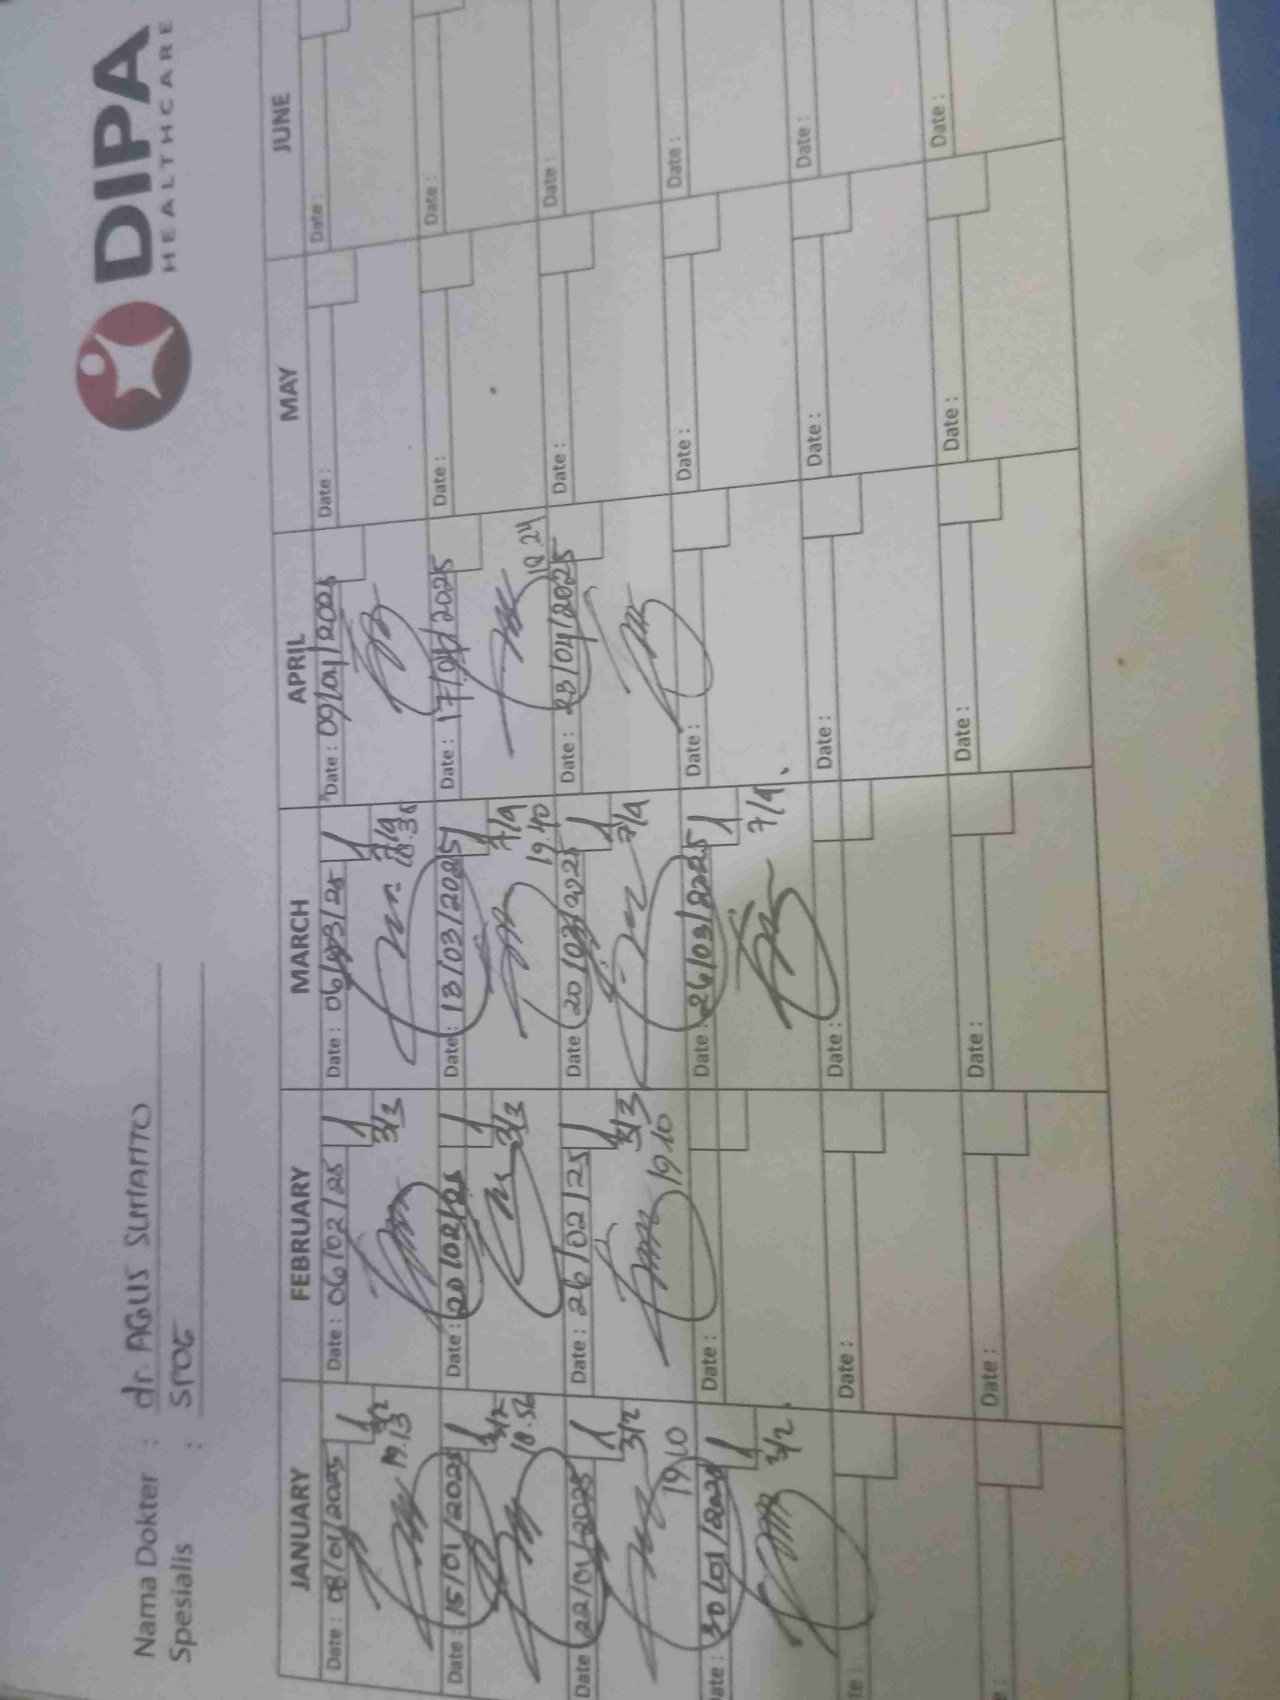 DIPA
HEALTHCARE
Nama Dokter : dr. AGUS SUMANTO
Spesialis :
JANUARY FEBRUARY MARCH APRIL MAY JUNE
Date : 08/01/2025 Date : 06/02/25 Date : 06/03/25 Date : 09/04/2025 Date : Date :
19.13 3/2 3/3 7/4 18.36
Date : 15/01/2025 Date : 20/02/25 Date : 13/03/2025 Date : 17/04/2025 Date : Date :
3/2 18.56 3/3 7/4 19.40 18.24
Date : 22/01/2025 Date : 26/02/25 Date 20/03/2025 Date : 23/04/2025 Date : Date :
3/2 19.10 3/3 19.10 7/4
Date : 30/01/2025 Date : Date : 26/03/2025 Date : Date : Date :
3/2 7/4
Date : Date : Date : Date : Date :
Date : Date : Date : Date : Date :